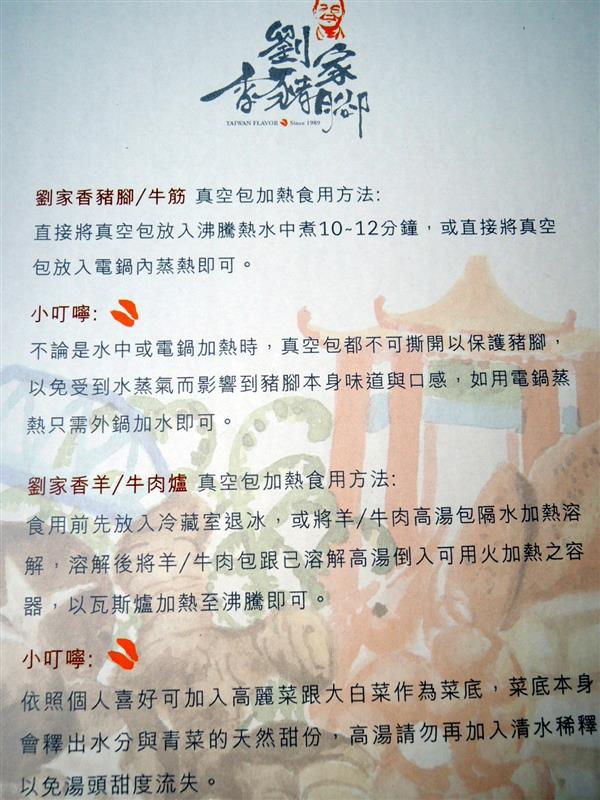 劉家
香豬腳
TAIWAN FLAVOR Since 1989
劉家香豬腳/牛筋 真空包加熱食用方法:
直接將真空包放入沸騰熱水中煮10~12分鐘，或直接將真空
包放入電鍋內蒸熱即可。
小叮嚀:
不論是水中或電鍋加熱時，真空包都不可撕開以保護豬腳，
以免受到水蒸氣而影響到豬腳本身味道與口感，如用電鍋蒸
熱只需外鍋加水即可。
劉家香羊/牛肉爐 真空包加熱食用方法:
食用前先放入冷藏室退冰，或將羊/牛肉高湯包隔水加熱溶
解，溶解後將羊/牛肉包跟已溶解高湯倒入可用火加熱之容
器，以瓦斯爐加熱至沸騰即可。
小叮嚀:
依照個人喜好可加入高麗菜跟大白菜作為菜底，菜底本身
會釋出水分與青菜的天然甜份，高湯請勿再加入清水稀釋
以免湯頭甜度流失。